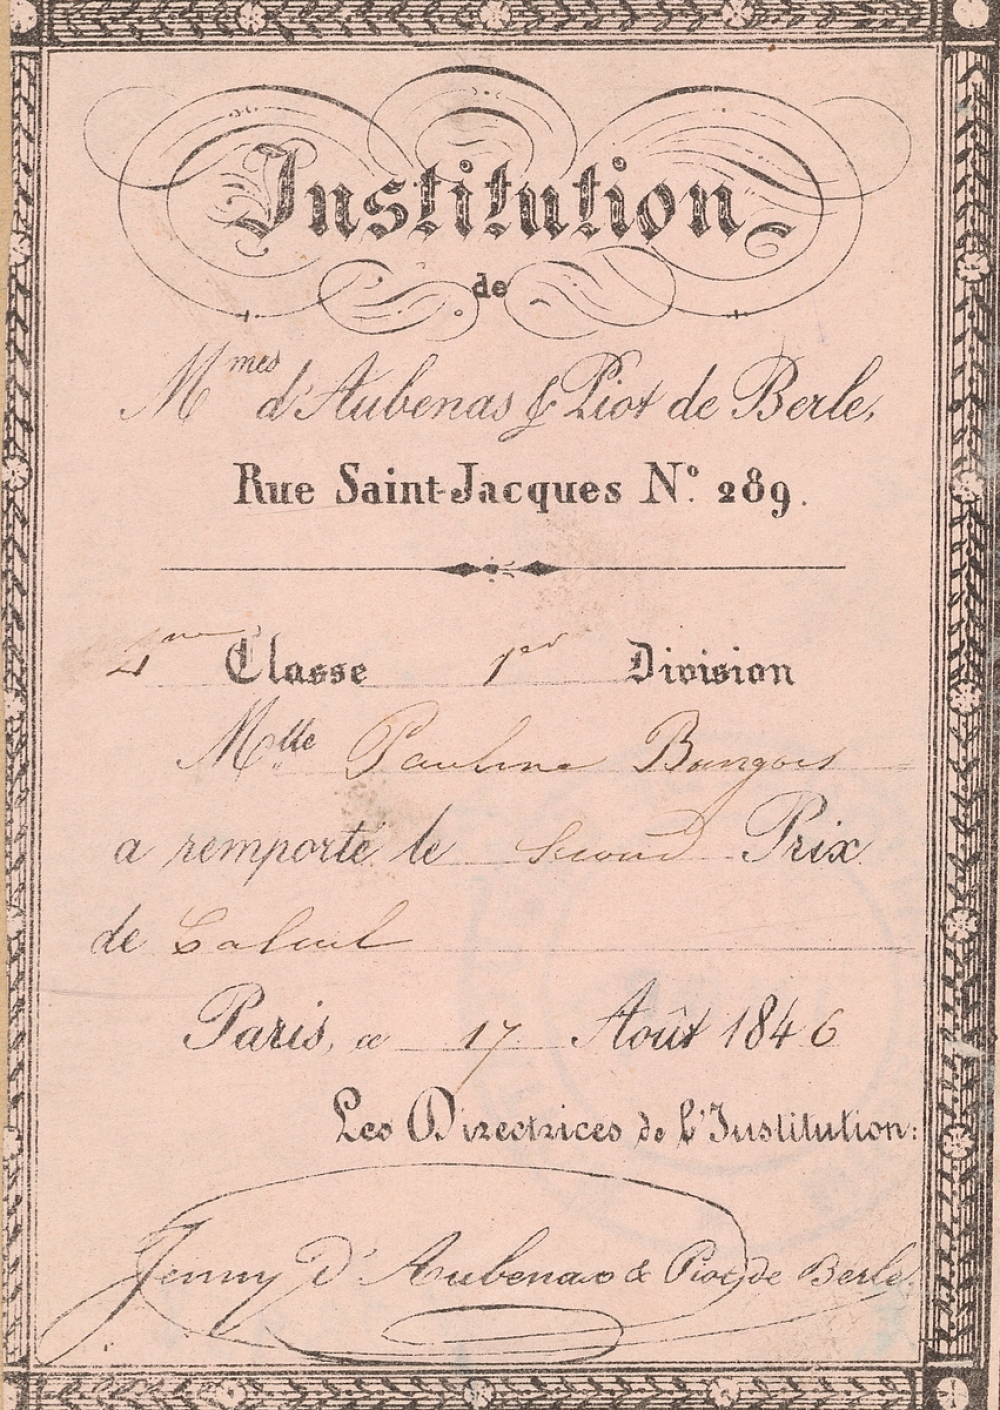 Institution
de
Mmes d'Aubenas & Piot de Berle,
Rue Saint-Jacques N° 289.
Classe 1re Division
Mlle Pauline
a remporté le Second Prix
de Calcul
Paris, ce 17 Août 1846
Les Directrices de l'Institution:
Jenny D'Aubenas & Piot de Berle.